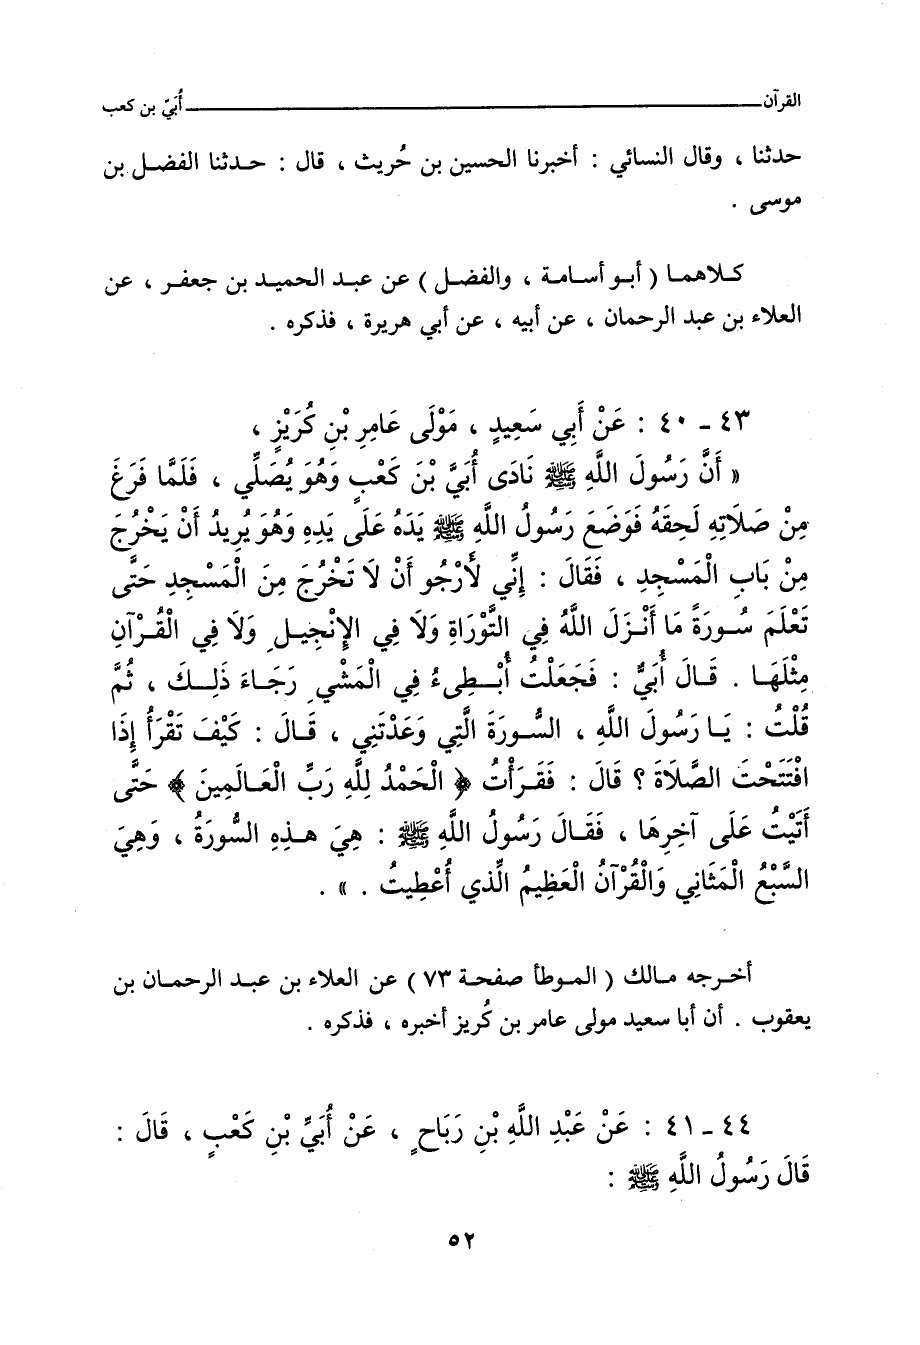 القرآن ــــــــــــــــــــ أُبَيّ بن كعب
حدثنا ، وقال النسائي : أخبرنا الحسين بن حُريث ، قال : حدثنا الفضل بن
موسى .
كلاهما ( أبو أسامة ، والفضل ) عن عبد الحميد بن جعفر ، عن
العلاء بن عبد الرحمان ، عن أبيه ، عن أبي هريرة ، فذكره .
٤٣ ـ ٤٠ : عَنْ أَبِي سَعِيدٍ ، مَوْلَى عَامِرِ بْنِ كُرَيْزٍ ،
« أَنَّ رَسُولَ اللَّهِ ﷺ نَادَى أُبَيَّ بْنَ كَعْبٍ وَهُوَ يُصَلِّي ، فَلَمَّا فَرَغَ
مِنْ صَلَاتِهِ لَحِقَهُ فَوَضَعَ رَسُولُ اللَّهِ ﷺ يَدَهُ عَلَى يَدِهِ وَهُوَ يُرِيدُ أَنْ يَخْرُجَ
مِنْ بَابِ الْمَسْجِدِ ، فَقَالَ : إِنِّي لَأَرْجُو أَنْ لَا تَخْرُجَ مِنَ الْمَسْجِدِ حَتَّى
تَعْلَمَ سُورَةً مَا أَنْزَلَ اللَّهُ فِي التَّوْرَاةِ وَلَا فِي الإِنْجِيلِ وَلَا فِي الْقُرْآنِ
مِثْلَهَا . قَالَ أُبَيٌّ : فَجَعَلْتُ أُبْطِىءُ فِي الْمَشْيِ رَجَاءَ ذَلِكَ ، ثُمَّ
قُلْتُ : يَا رَسُولَ اللَّهِ ، السُّورَةَ الَّتِي وَعَدْتَنِي ، قَالَ : كَيْفَ تَقْرَأُ إِذَا
افْتَتَحْتَ الصَّلَاةَ ؟ قَالَ : فَقَرَأْتُ ﴿ الْحَمْدُ لِلَّهِ رَبِّ الْعَالَمِينَ ﴾ حَتَّى
أَتَيْتُ عَلَى آخِرِهَا ، فَقَالَ رَسُولُ اللَّهِ ﷺ : هِيَ هَذِهِ السُّورَةُ ، وَهِيَ
السَّبْعُ الْمَثَانِي وَالْقُرْآنُ الْعَظِيمُ الَّذِي أُعْطِيتُ . » .
أخرجه مالك ( الموطأ صفحة ٧٣ ) عن العلاء بن عبد الرحمان بن
يعقوب . أن أبا سعيد مولى عامر بن كُريز أخبره ، فذكره .
٤٤ ـ ٤١ : عَنْ عَبْدِ اللَّهِ بْنِ رَبَاحٍ ، عَنْ أُبَيِّ بْنِ كَعْبٍ ، قَالَ :
قَالَ رَسُولُ اللَّهِ ﷺ :
٥٢